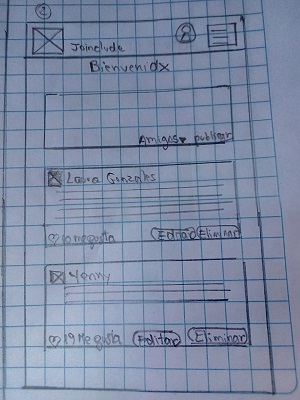 Joinclude
Bienvenidx
Amigos▾ publicar
Laura Gonzales
♡ 10 me gusta Editar Eliminar
Yenny
♡ 19 Me gusta Editar Eliminar